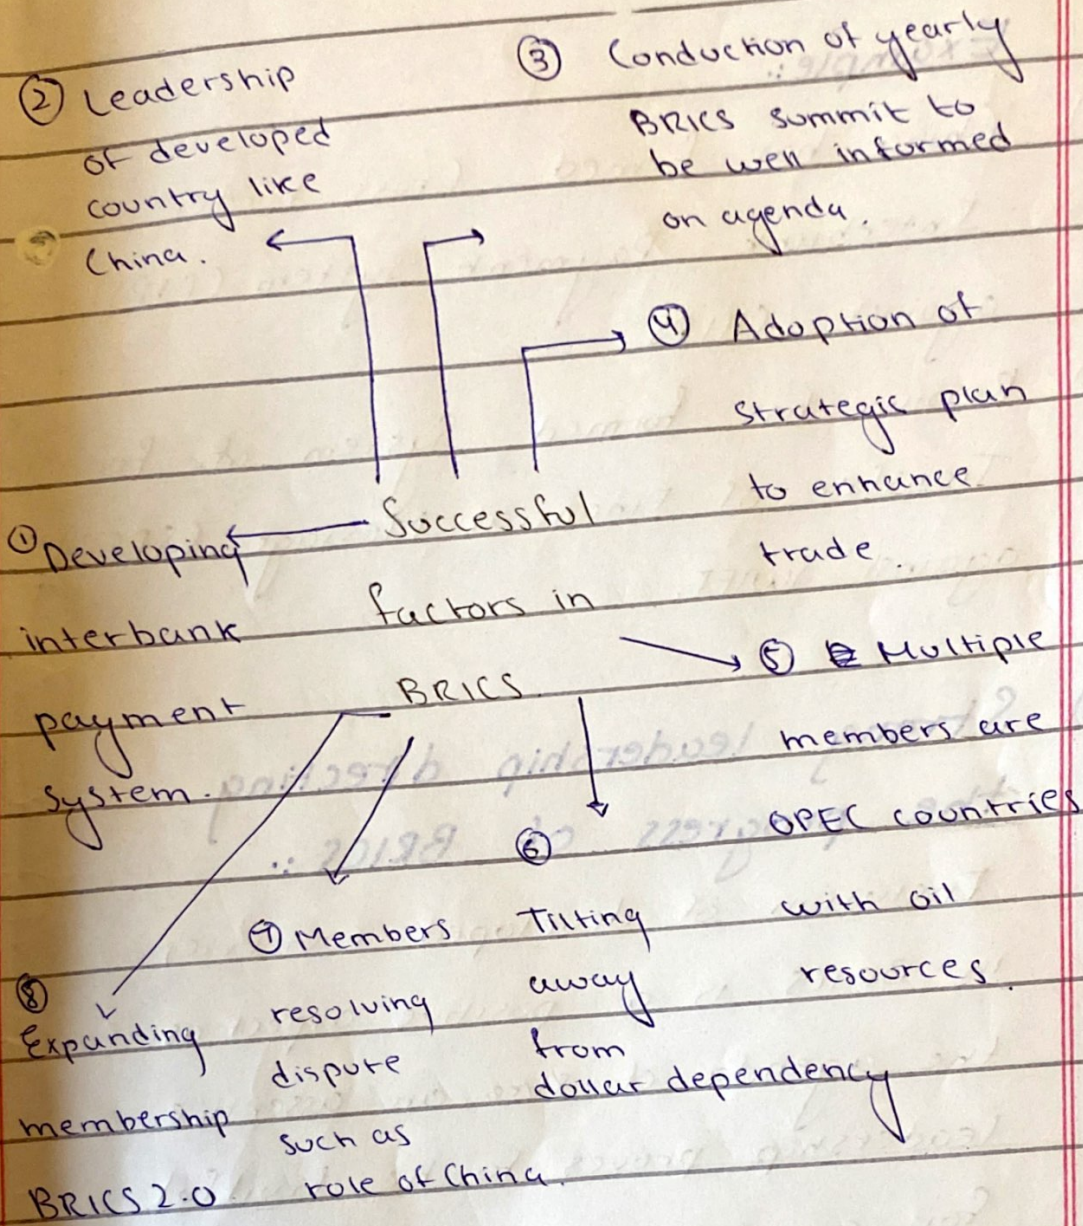 ② Leadership
of developed
country like
China.
③ Conduction of yearly
BRICS summit to
be well informed
on agenda.
④ Adoption of
strategic plan
to enhance
trade.
Successful
factors in
BRICS
① Developing
interbank
payment
system.
⑤ Multiple
members are
OPEC countries
with oil
resources.
⑥
Tilting
away
from
dollar dependency
⑦ Members
resolving
dispute
such as
role of China.
⑧
Expanding
membership
BRICS 2.0